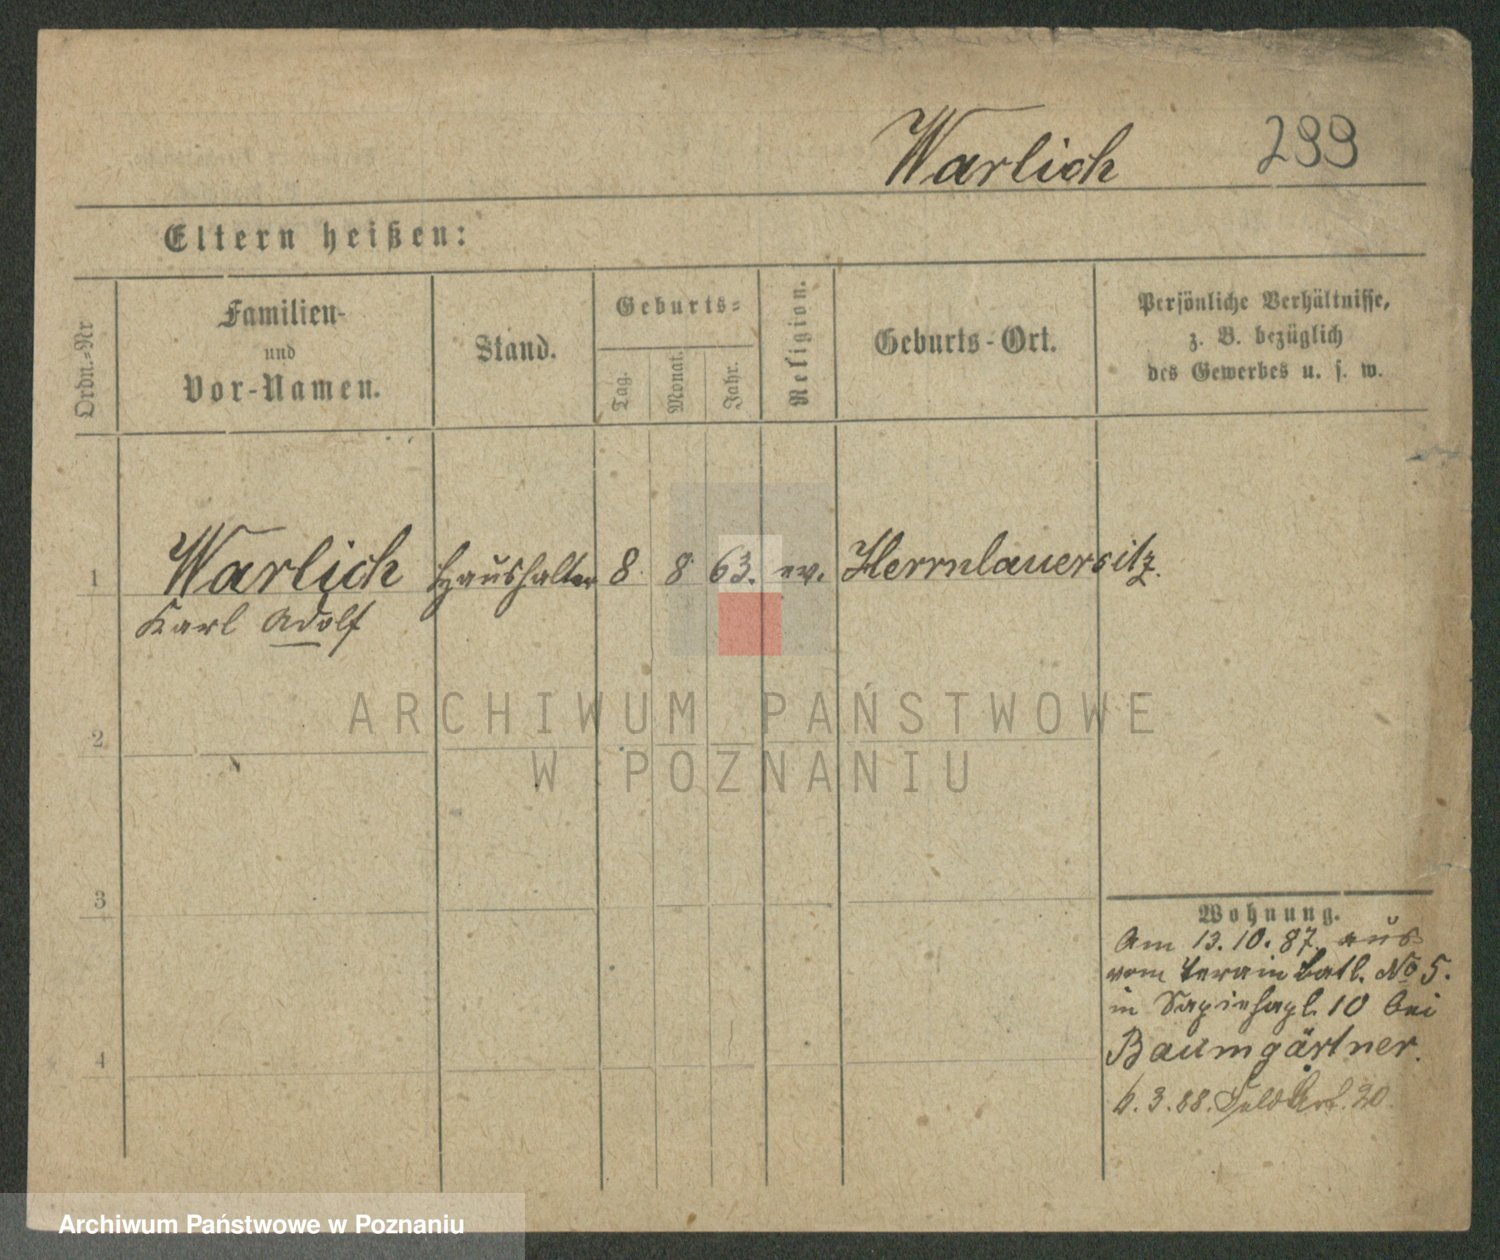 Warlich 299
Eltern heißen:
Ordn.=Nr
Familien-
und
Vor-Namen.
Stand.
Geburts=
Tag.
Monat.
Jahr.
Religion.
Geburts-Ort.
Persönliche Verhältnisse,
z. B. bezüglich
des Gewerbes u. s. w.
1 Warlich Haushalter 8 8 63. ev. Herrnlauersitz.
Karl Adolf
2
3
4
Wohnung.
Am 13.10.87. aus
vom Terain Batl. No 5.
in Sapiehapl. 10 bei
Baumgärtner.
6.3.88. Feld Art. 20.
ARCHIWUM PAŃSTWOWE
W POZNANIU
Archiwum Państwowe w Poznaniu